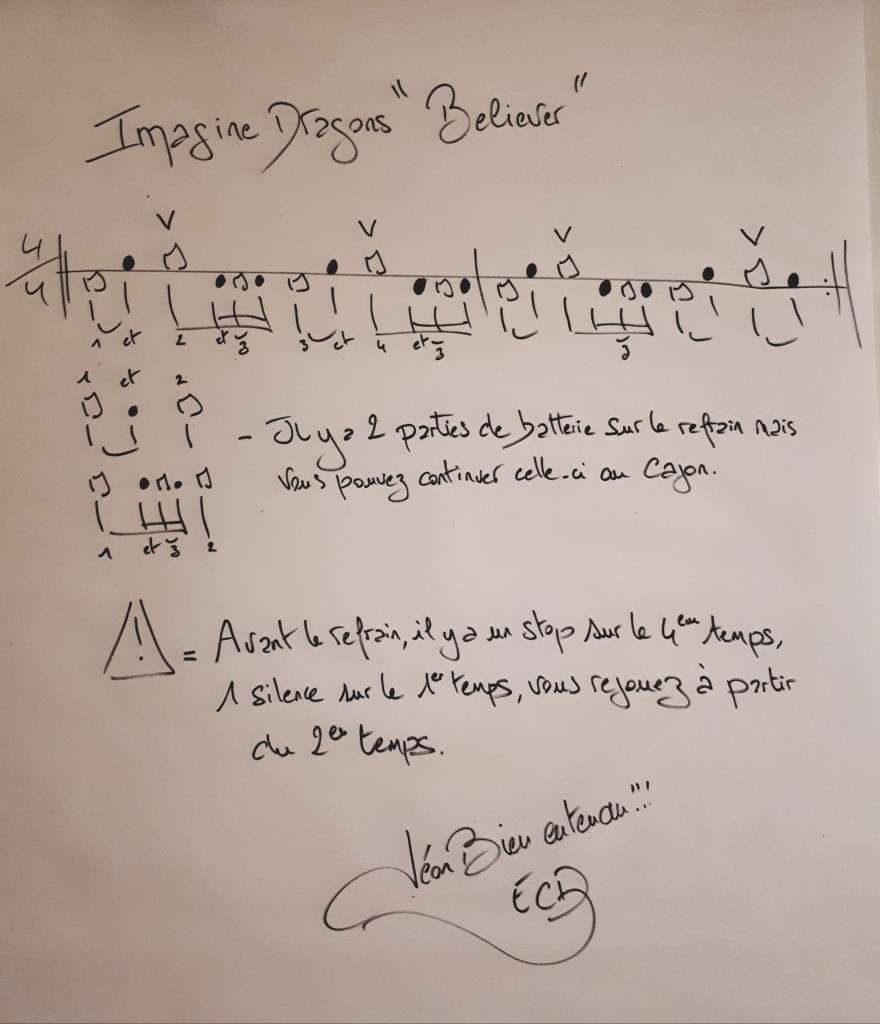 Imagine Dragons "Believer"
V V V V
4/4
1 et 2 et 3 3 et 4 et 3 3
1 et 2
- Il y a 2 parties de batterie sur le refrain mais
vous pouvez continuer celle-ci au Cajon.
1 et 3 2
! = Avant le refrain, il y a un stop sur le 4em temps,
1 silence sur le 1er temps, vous rejouez à partir
du 2em temps.
Bien entendu!!!
ECD